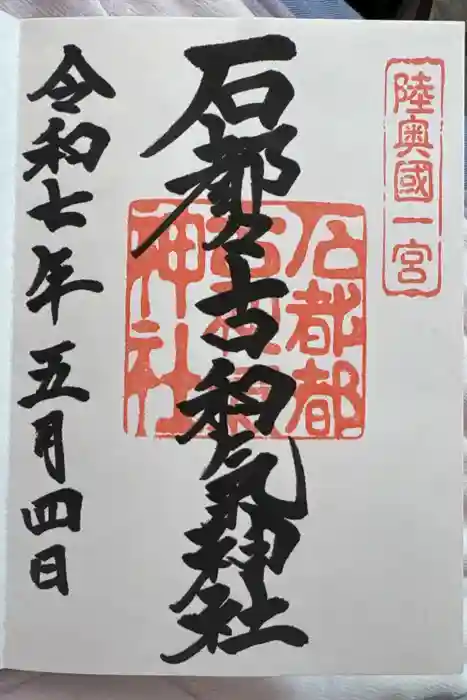 陸奥國一宮
石都々古和氣神社
石都都
古和氣
神社
令和七年五月四日